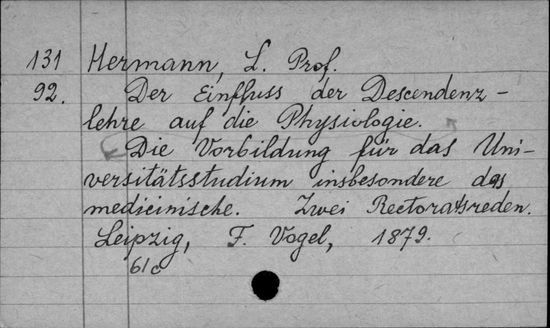 131 Hermann, L. Prof.
92. Der Einfluss der Descendenz-
lehre auf die Physiologie.
Die Vorbildung für das Uni-
versitätsstudium insbesondere das
medicinische. Zwei Rectoratsreden.
Leipzig, F. Vogel, 1879.
61c